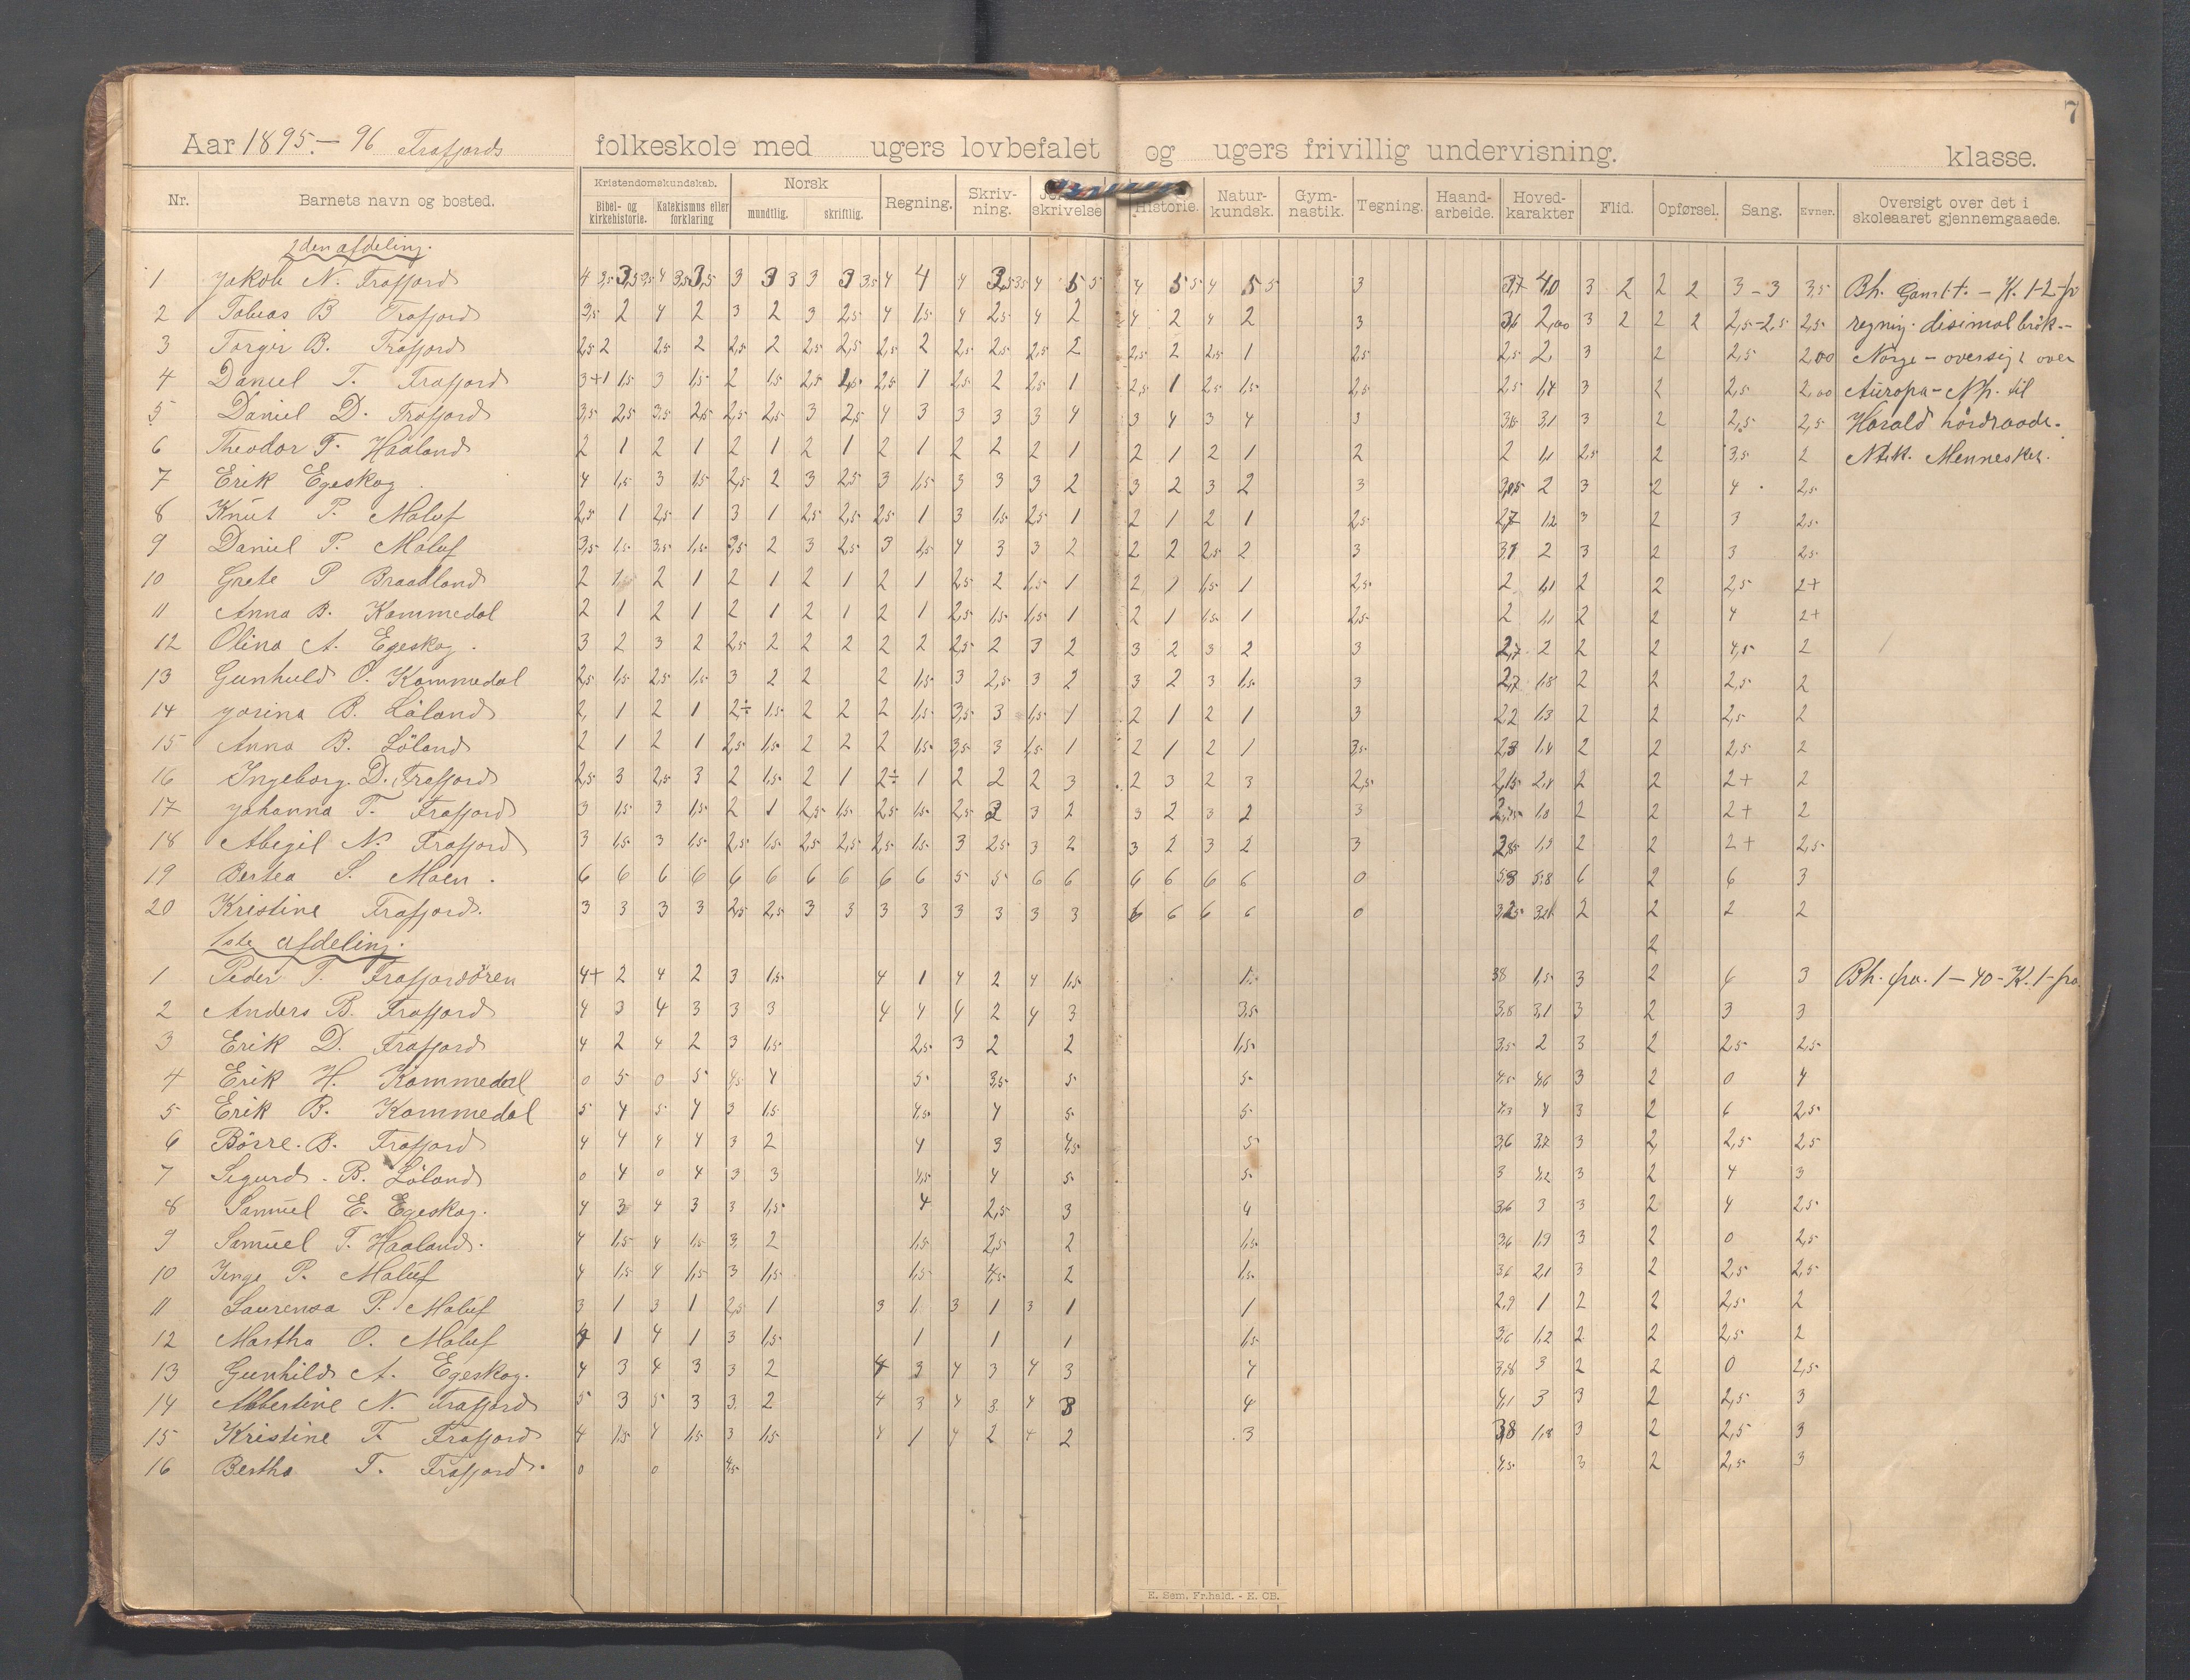 7
Aar 1895.-96 Frafjords folkeskole med ugers lovbefalet og ugers frivillig undervisning. klasse.
Nr. Barnets navn og bosted. Kristendomskundskab. Bibel- og kirkehistorie. Katekismus eller forklaring Norsk mundtlig. skriftlig. Regning. Skriv-ning. skrivelse Historie. Natur-kundsk. Gym-nastik. Tegning. Haand-arbeide. Hoved-karakter Flid. Opførsel. Sang. Evner. Oversigt over det i skoleaaret gjennemgaaede.
2den afdeling.
1 Jakob N. Frafjord 3 2 2 2 3-3 3,5 Bh.
2 Tobias B Frafjord 3,5 2 4 2 3 2 3 2,5 4 1,5 4 2,5 4 2 4 2 4 2 3 3,6 2,00 3 2 2 2 2,5-2,5 2,5 regnig. disimalbrök.-
3 Torger B. Frafjord 2,5 2 2,5 2 2,5 2 2,5 2,5 2,5 2 2,5 2,5 2,5 2 2,5 2 2,5 1 2,5 2,5 2, 3 2 2,5 2,00 Norge - oversigt over
4 Daniel T. Frafjord 3+1 1,5 3 1,5 2 1,5 2,5 1,5 2,5 1 2,5 2 2,5 1 2,5 1 2,5 1,5 2,5 2,5 1,4 3 2 2,5 2,00 Auropa - Nh. til
5 Daniel D. Frafjord 3,5 2,5 3,5 2,5 2,5 2,5 3 2,5 4 3 3 3 3 4 3 4 3 4 3 3,6 3,1 3 2 2,5 2,5 Harald hördraade.
6 Theodor T. Haaland 2 1 2 1 2 1 2 1 2 1 2 2 2 1 2 1 2 1 2 2 1,1 2,5 2 3,5 2 Ntk. Mennesket.
7 Erik Egeskog. 4 1,5 3 1,5 2,5 2 3 2,5 3 1,5 3 3 3 2 3 2 3 2 3 3,05 2 3 2 4 2,5
8 Knut P. Maluf 2,5 1 2,5 1 3 1 2,5 2,5 2,5 1 3 1,5 2,5 1 2 1 2 1 2,5 2,7 1,2 3 2 3 2,5
9 Daniel P. Maluf 3,5 1,5 3,5 1,5 3,5 2 3 2,5 3 1,5 4 3 3 2 2 2 2,5 2 3 3,1 2 3 2 3 2,5
10 Grete P Braadland 2 1, 2 1 2 1 2 1 2 1 2,5 2 1,5 1 2 1 1,5 1 2,5 2 1,1 2 2 2,5 2+
11 Anna B. Kommedal 2 1 2 1 2 1 2 1 2 1 2,5 1,5 1,5 1 2 1 1,5 1 2,5 2 1,1 2 2 4 2+
12 Olina A. Egeskog. 3 2 3 2 2,5 2 2 2 2 2 2,5 2 3 2 3 2 3 2 3 2,7 2 2 2 4,5 2
13 Gunhuld O. Kommedal 2,5 1,5 2,5 1,5 3 2 2 2 1,5 3 2,5 3 2 3 2 3 1,5 3 2,7 1,8 2 2 2,5 2
14 Josina B. Löland 2, 1 2 1 2÷ 1,5 2 2 2 1,5 3,5 3 1,5 1 2 1 2 1 3 2,2 1,3 2 2 2,5 2
15 Anna B. Löland 2 1 2 1 2,5 1,5 2 2 2 1,5 3,5 3 1,5 1 2 1 2 1 3,5 2,3 1,4 2 2 2,5 2
16 Ingeborg D. Frafjord 2,5 3 2,5 3 2 1,5 2 1 2÷ 1 2 2 2 3 2 3 2 3 2,5 2,15 2,4 2 2 2+ 2
17 Johanna T. Frafjord 3 1,5 3 1,5 2 1 2,5 1,5 2,5 1,5 2,5 2 3 2 3 2 3 2 3 1,8 2 2 2+ 2
18 Abegil N. Frafjord 3 1,5 3 1,5 2,5 1,5 2,5 2,5 2,5 1,5 3 2,5 3 2 3 2 3 2 3 2,85 1,9 2 2 2+ 2,5
19 Bertea S. Moen. 6 6 6 6 6 6 6 6 6 6 5 5 6 6 6 6 6 6 0 5,8 5,8 6 2 6 3
20 Kristine Frafjord. 3 3 3 3 2,5 2,5 3 3 3 3 3 3 3 3 6 6 6 6 0 2 2 2 2
1ste afdeling. 2
1 Peder T. Frafjordören 4+ 2 4 2 3 1,5 4 1 4 2 4 1,5 1, 3,8 1,5 3 2 6 3 Bh. fra. 1-40- K. 1- fra.
2 Anders B. Frafjord 4 3 4 3 3 3 4 4 4 2 4 3 3,5 3,8 3,1 3 2 3 3
3 Erik D. Frafjord 4 2 4 2 3 1,5 2,5 3 2 2 1,5 3,5 2 3 2 2,5 2,5
4 Erik H. Kommedal 0 5 0 5 4,5 4 5 3,5 5 5 4,5 4,6 3 2 0 4
5 Erik B. Kommedal 5 4 5 4 3 1,5 4,5 4 5 5 4,3 4 3 2 6 2,5
6 Börre B. Frafjord 4 4 4 4 3 2 4 3 4,5 5 3,6 3,7 3 2 2,5 2,5
7 Sigurd B. Löland 0 4 0 4 3 3 4,5 4 5 5 3 4,2 3 2 4 3
8 Samuel E. Egeskog. 4 3 4 3 3 1,5 4 2,5 3 4 3,6 3 3 2 4 2,5
9 Samuel T. Haaland. 4 1,5 4 1,5 3 2 1,5 2,5 2 1,5 3,6 1,9 3 2 0 2,5
10 Inge P. Maluf 4 1,5 4 1,5 3 1,5 1,5 4,5 2 1,5 3,6 2,1 3 2 2,5 2,5
11 Laurensa P. Maluf 3 1 3 1 2,5 1 3 1 3 1 3 1 1 2,9 1 2 2 2,5 2
12 Martha O. Maluf 4 1 4 1 3 1,5 1 1 1 1,5 3,6 1,2 2 2 2,5 2
13 Gunhild A. Egeskog. 4 3 4 3 3 2 4 3 4 3 4 3 4 3,8 3 2 2 0 2,5
14 Albertine N. Frafjord 5 3 5 3 3 2 4 3 4 3 4 3 4 4,1 3 3 2 2,5 3
15 Kristine T. Frafjord 4 1,5 4 1,5 3 1,5 4 1 4 2 4 2 3 3,8 1,8 3 2 2,5 3
16 Bertha T. Frafjord. 0 0 4,5 4,5 3 2 2,5 3
E. Sem. Fr.hald. - E. CB.